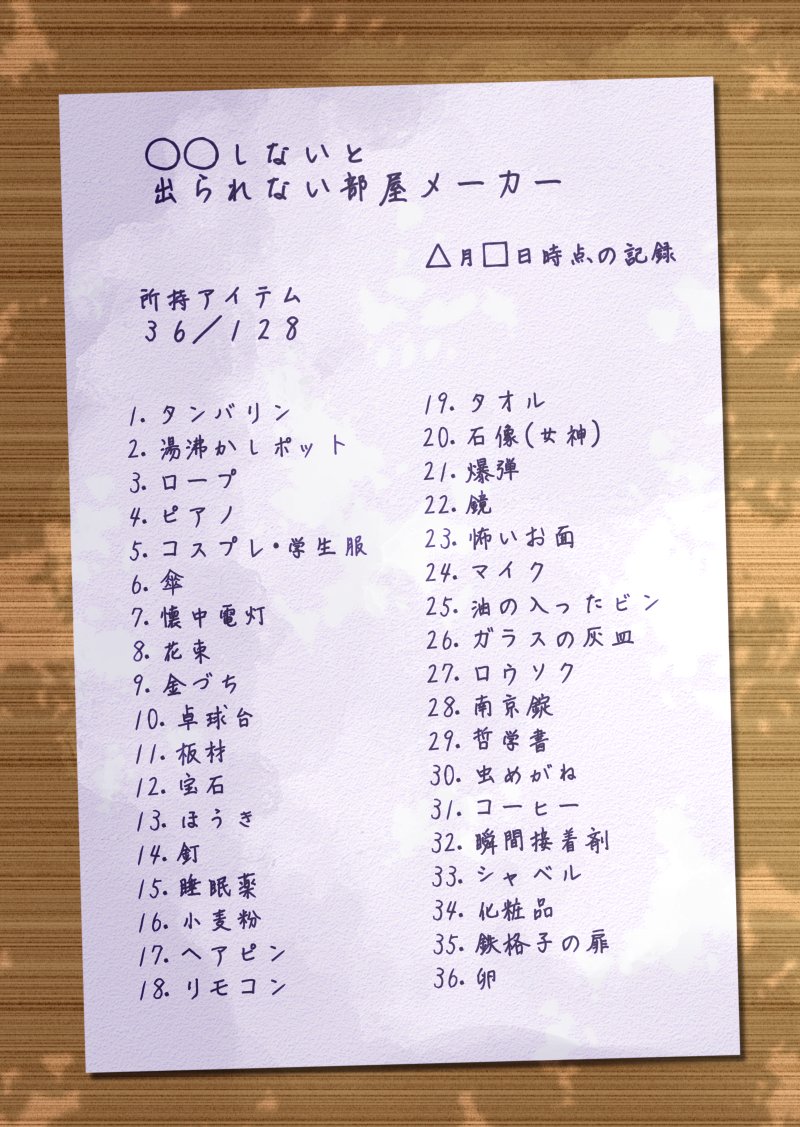 ○○しないと
出られない部屋メーカー
△月□日時点の記録
所持アイテム
36/128
1. タンバリン
2. 湯沸かしポット
3. ロープ
4. ピアノ
5. コスプレ・学生服
6. 傘
7. 懐中電灯
8. 花束
9. 金づち
10. 卓球台
11. 板材
12. 宝石
13. ほうき
14. 釘
15. 睡眠薬
16. 小麦粉
17. ヘアピン
18. リモコン
19. タオル
20. 石像(女神)
21. 爆弾
22. 鏡
23. 怖いお面
24. マイク
25. 油の入ったビン
26. ガラスの灰皿
27. ロウソク
28. 南京錠
29. 哲学書
30. 虫めがね
31. コーヒー
32. 瞬間接着剤
33. シャベル
34. 化粧品
35. 鉄格子の扉
36. 卵